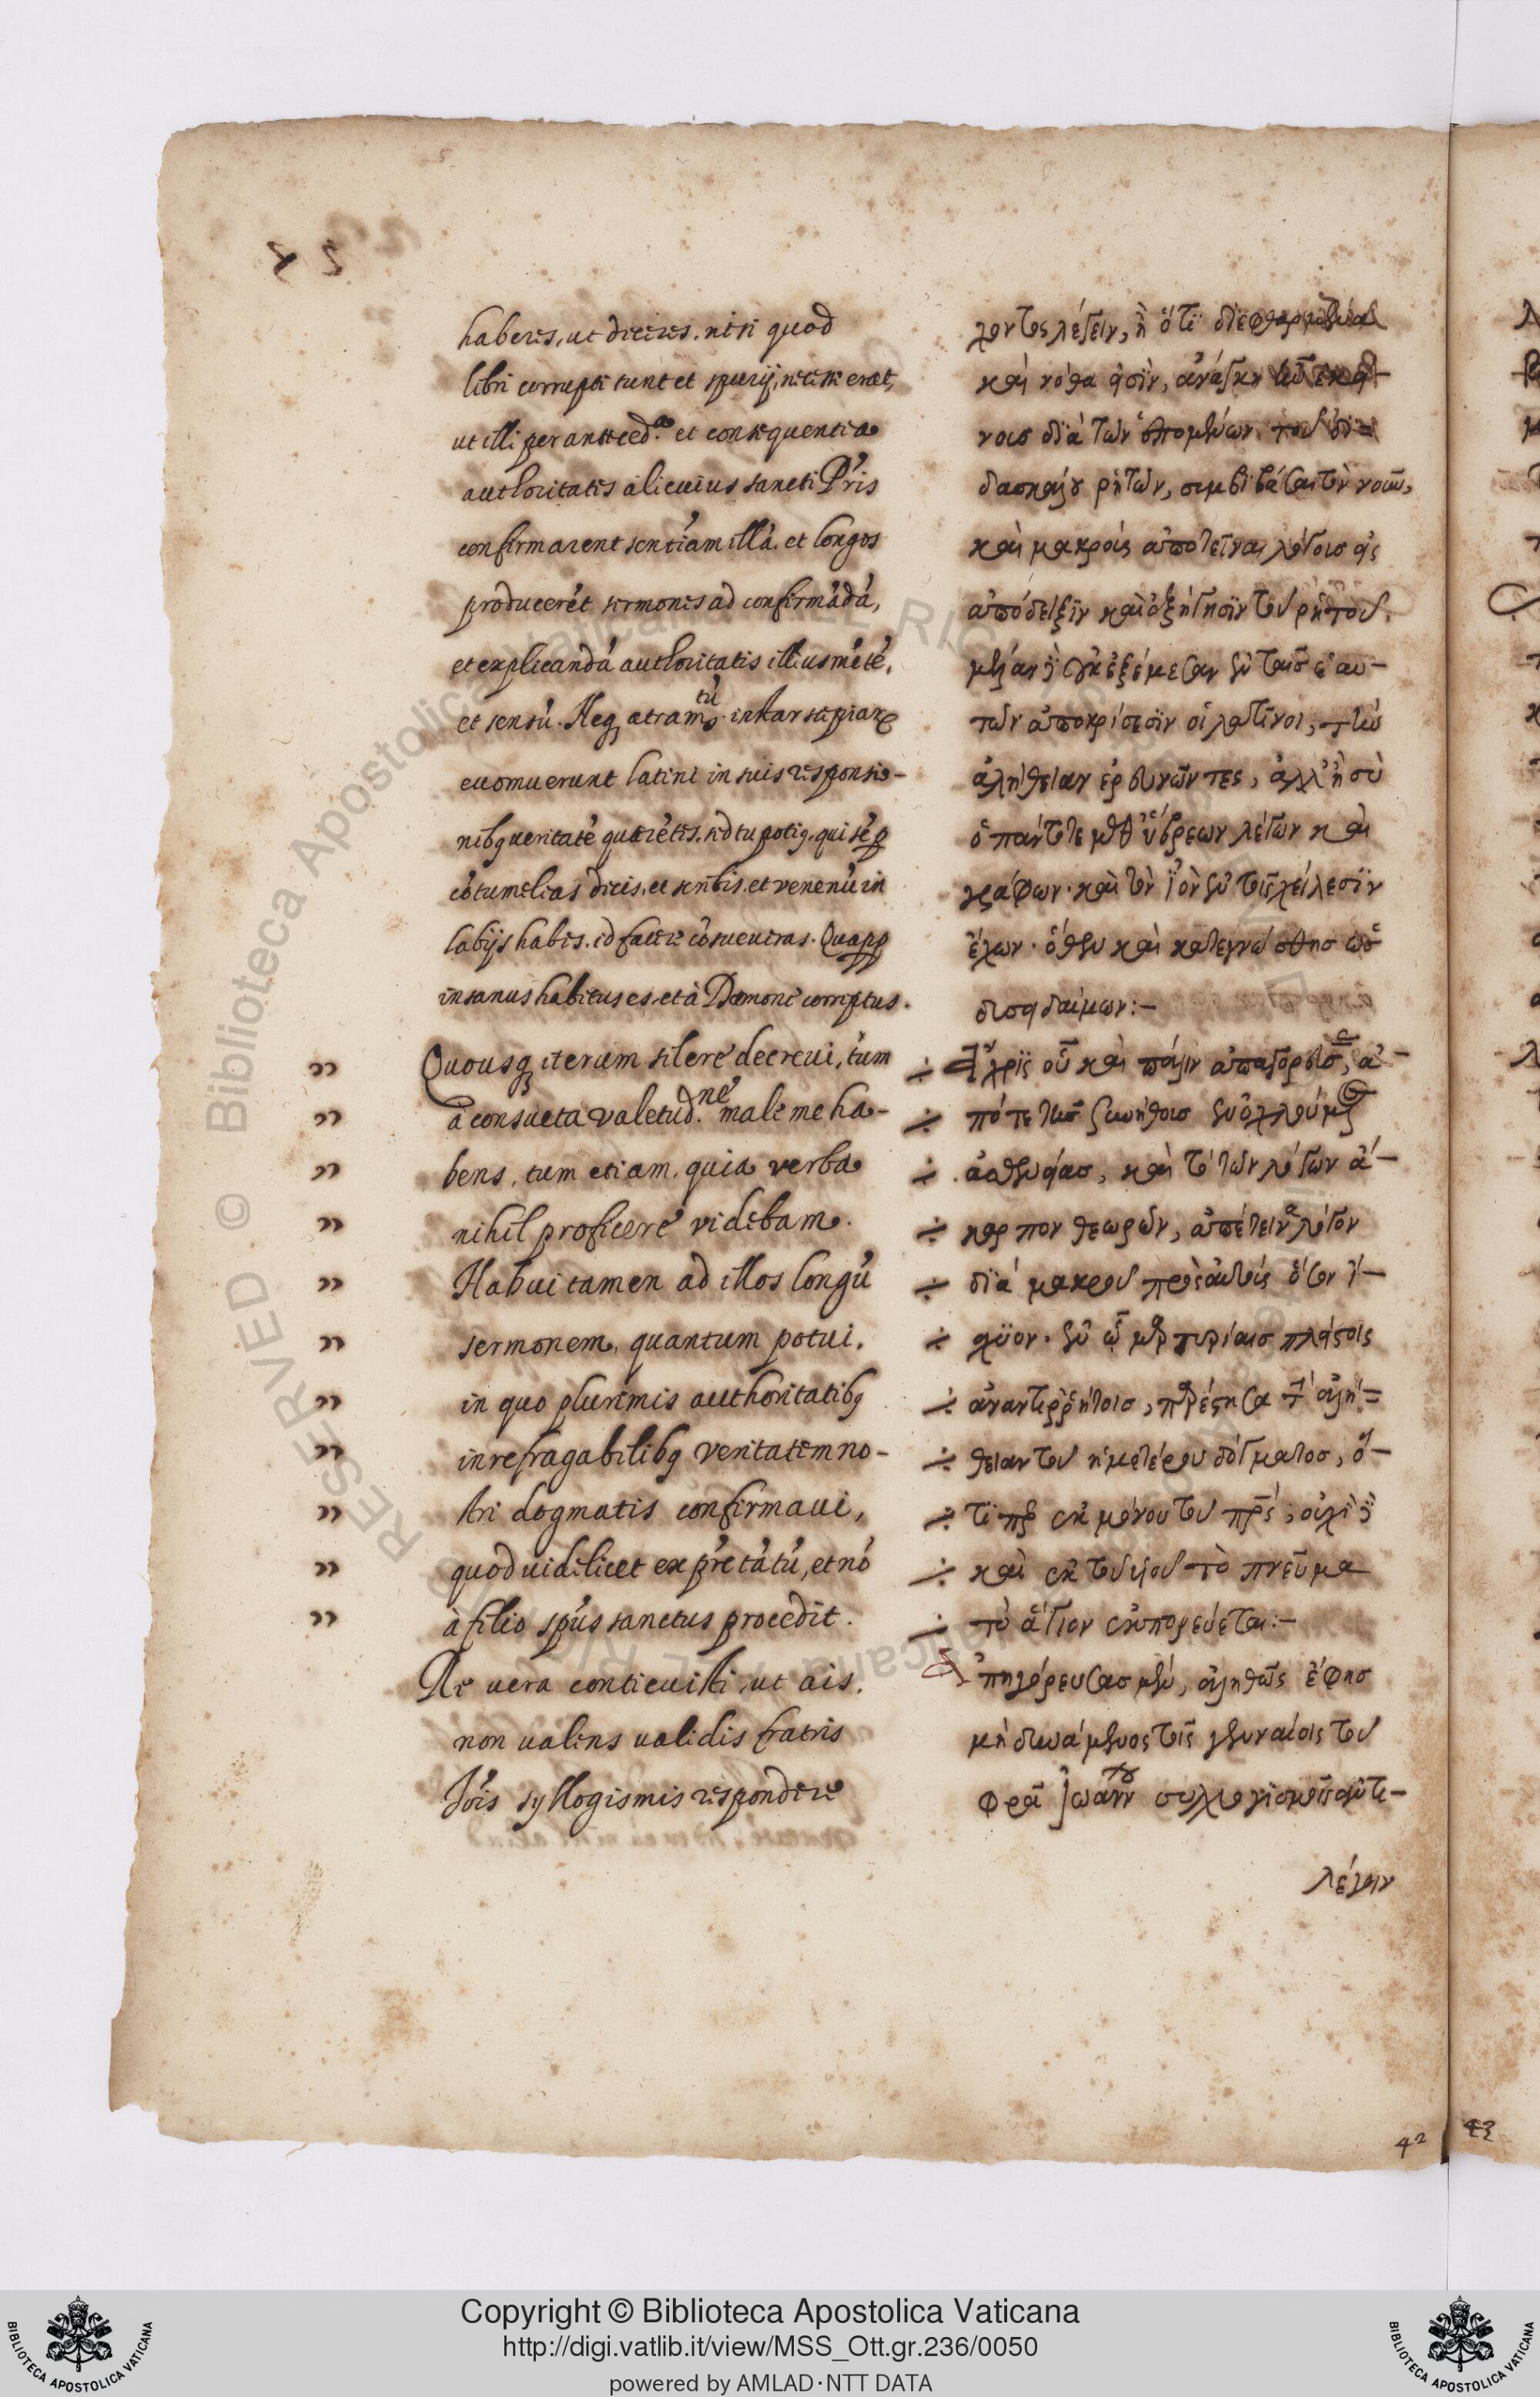 haberes, ut diceres, nisi quod
libri corrupti sunt et spurij, necesse erat,
ut illi per anteced.a et consequentia
authoritatis alicuius sancti Pr̃is
confirmarent sentẽiam illã, et longos
producerẽt sermones ad confirmãdã,
et explicandã authoritatis illius mẽtẽ,
et sensũ. Neq; atramẽtũ instar sepiarũ
euomuerunt latini in suis responsio-
nibq veritatẽ quærẽtes, sed tu potiq, qui sẽp
cõtumelias dicis, et scribis, et venenũ in
labijs habes, id facere cõsueueras. Quapp
insanus habitus es, et à Dæmone correptus.
Quousq; iterum silere decreui, tum
à consueta valetud.ne male me ha-
bens, tum etiam, quia verba
nihil proficere videbam.
Habui tamen ad illos longũ
sermonem, quantum potui,
in quo plurimis authoritatibq
inrefragabilibq veritatem no-
stri dogmatis confirmaui,
quod uidelicet ex pr̃e tãtũ, et nõ
à filio spũs sanctus procedit.
Re uera conticuisti, ut ais,
non ualens ualidis fratris
Jõis syllogismis respondere
λοντος λέγειν, ἢ ὅτι
καὶ νόθα εἰσὶν, ἀνάγκη
νοις διὰ τῶν ἑπομένων τοῦ δι=
δασκάλου ῥητῶν, συμβιβάσαι τὸν νοῦν,
καὶ μακροὺς ἀποτεῖναι λόγους εἰς
ἀπόδειξιν καὶ ἐξήγησιν τοῦ ῥητοῦ.
μέλαν δὲ οὐκ ἐξέμεσαν ἐν ταῖς ἑαυ-
τῶν ἀποκρίσεσιν οἱ λατῖνοι, τὴν
ἀλήθειαν ἐρευνῶντες, ἀλλ' ἢ σὺ
ὁ πάντοτε μεθ' ὕβρεων λέγων καὶ
γράφων. καὶ τὸν ἰὸν ἐν τοῖς χείλεσιν
ἔχων. ὅθεν καὶ κατεγνώσθης ὡς
δισιδαίμων:-
Ἄχρις οὗ καὶ πάλιν ἀπαγορεύσας, ἀ-
πό τε τῆς συνήθους ἐνοχλούμενος
ἀσθενείας, καὶ τὸ τῶν λόγων ἄ-
καρπον θεωρῶν, ἀπέτεινα λόγον
διὰ μακροῦ πρὸς αὐτοὺς ὅσον ἴ-
σχυον. ἐν ᾧ μαρτυρίαις πλείστοις
ἀναντιρρήτοις, παρέστησα τὴν ἀλή=
θειαν τοῦ ἡμετέρου δόγματος, ὅ-
τι περ ἐκ μόνου τοῦ πρς, οὐχὶ δὲ
καὶ ἐκ τοῦ υἱοῦ τὸ πνεῦμα
τὸ ἅγιον ἐκπορεύεται:-
Ἀπηγόρευσας μὲν, ἀληθῶς ἔφης
μὴ δυνάμενος τοῖς γενναίοις τοῦ
φρᾶ Ἰωάννου συλλογισμοῖς ἀντι-
λέγειν
42
43
Copyright © Biblioteca Apostolica Vaticana
http://digi.vatlib.it/view/MSS_Ott.gr.236/0050
powered by AMLAD·NTT DATA
BIBLIOTECA APOSTOLICA VATICANA
BIBLIOTECA APOSTOLICA VATICANA